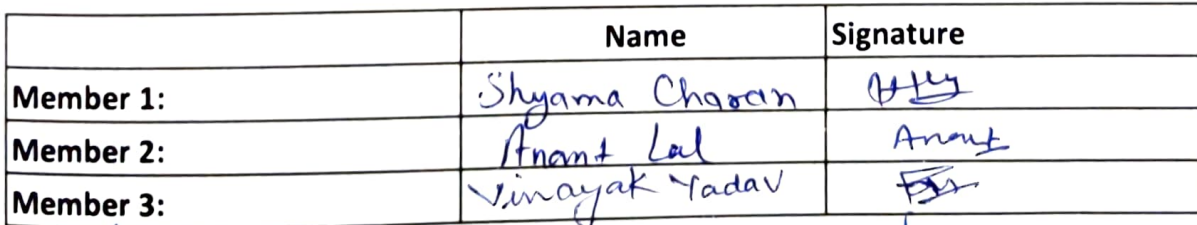 Name Signature
Member 1: Shyama Charan
Member 2: Anant Lal Anant
Member 3: Vinayak Yadav